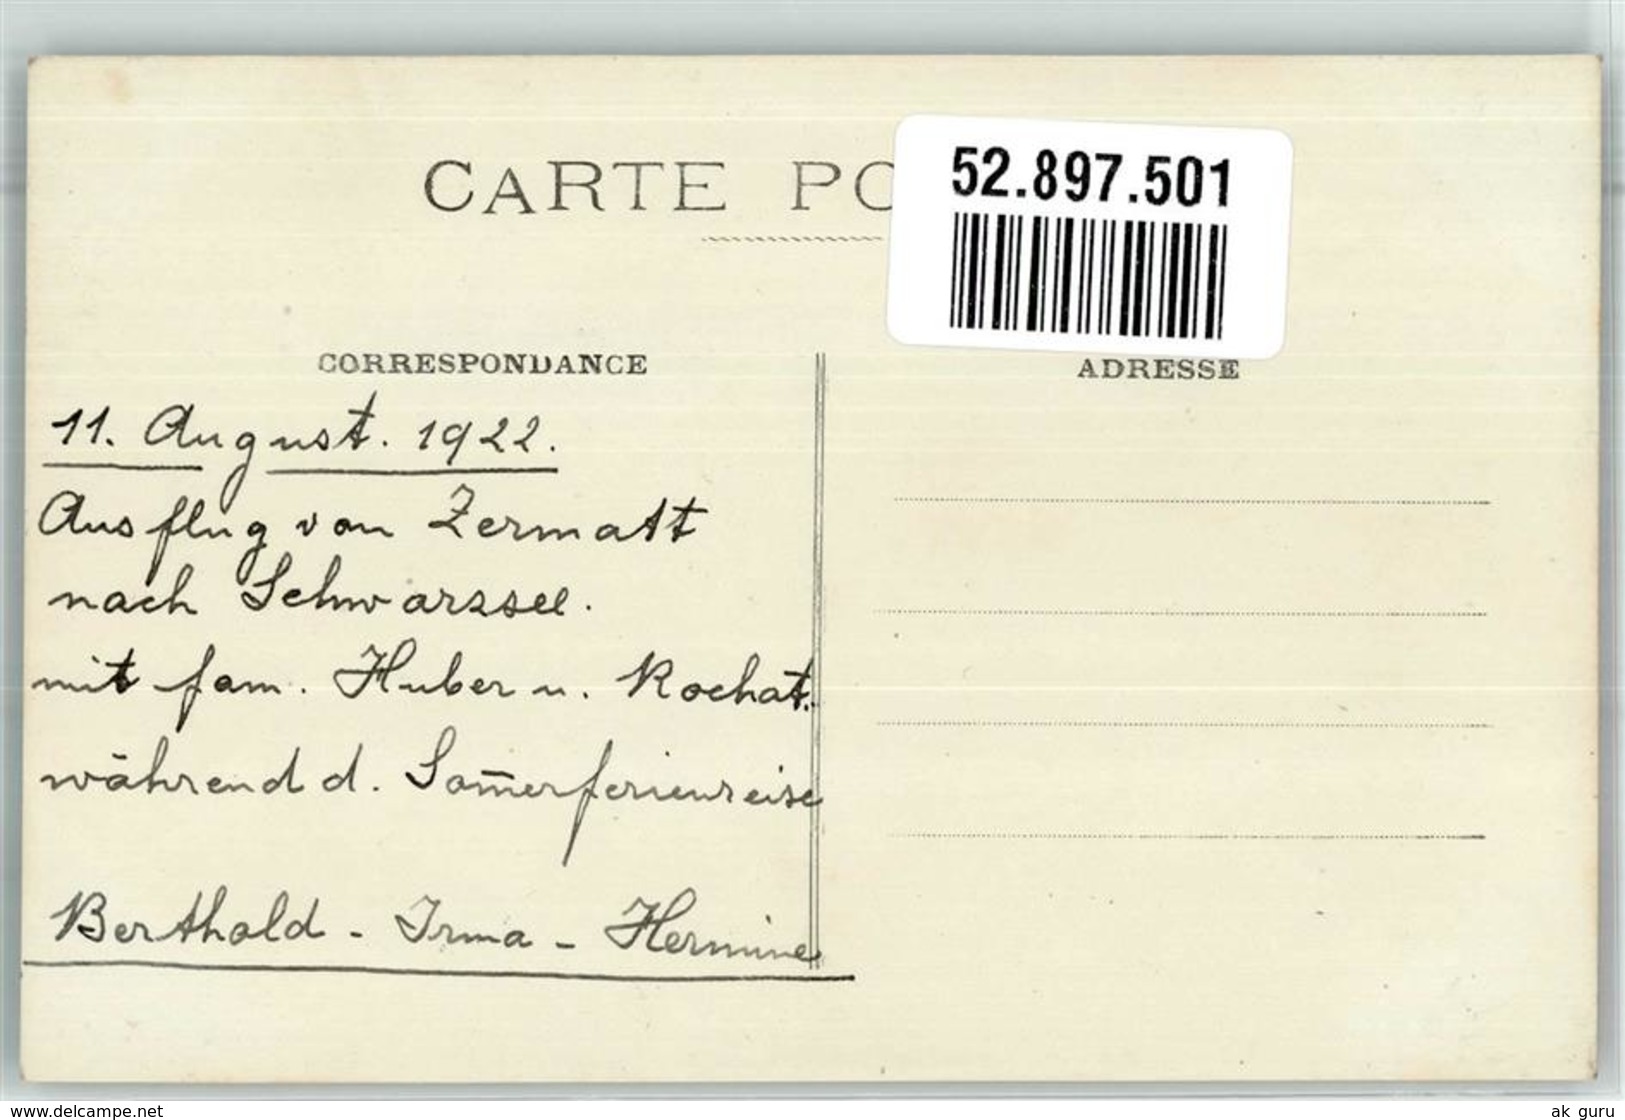 CARTE PO
52.897.501
CORRESPONDANCE
ADRESSE
11. August. 1922.
Ausflug von Zermatt
nach Schwarzsee.
mit fam. Huber u. Rochat.
während d. Som̄erferienreise
Berthold - Irma - Hermine
www.delcampe.net
ak guru